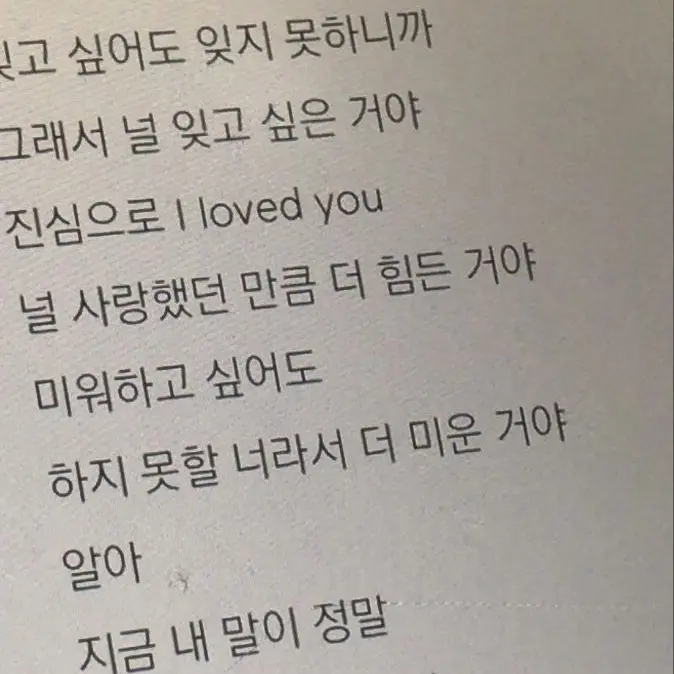 잊고 싶어도 잊지 못하니까
그래서 널 잊고 싶은 거야
진심으로 I loved you
널 사랑했던 만큼 더 힘든 거야
미워하고 싶어도
하지 못할 너라서 더 미운 거야
알아
지금 내 말이 정말